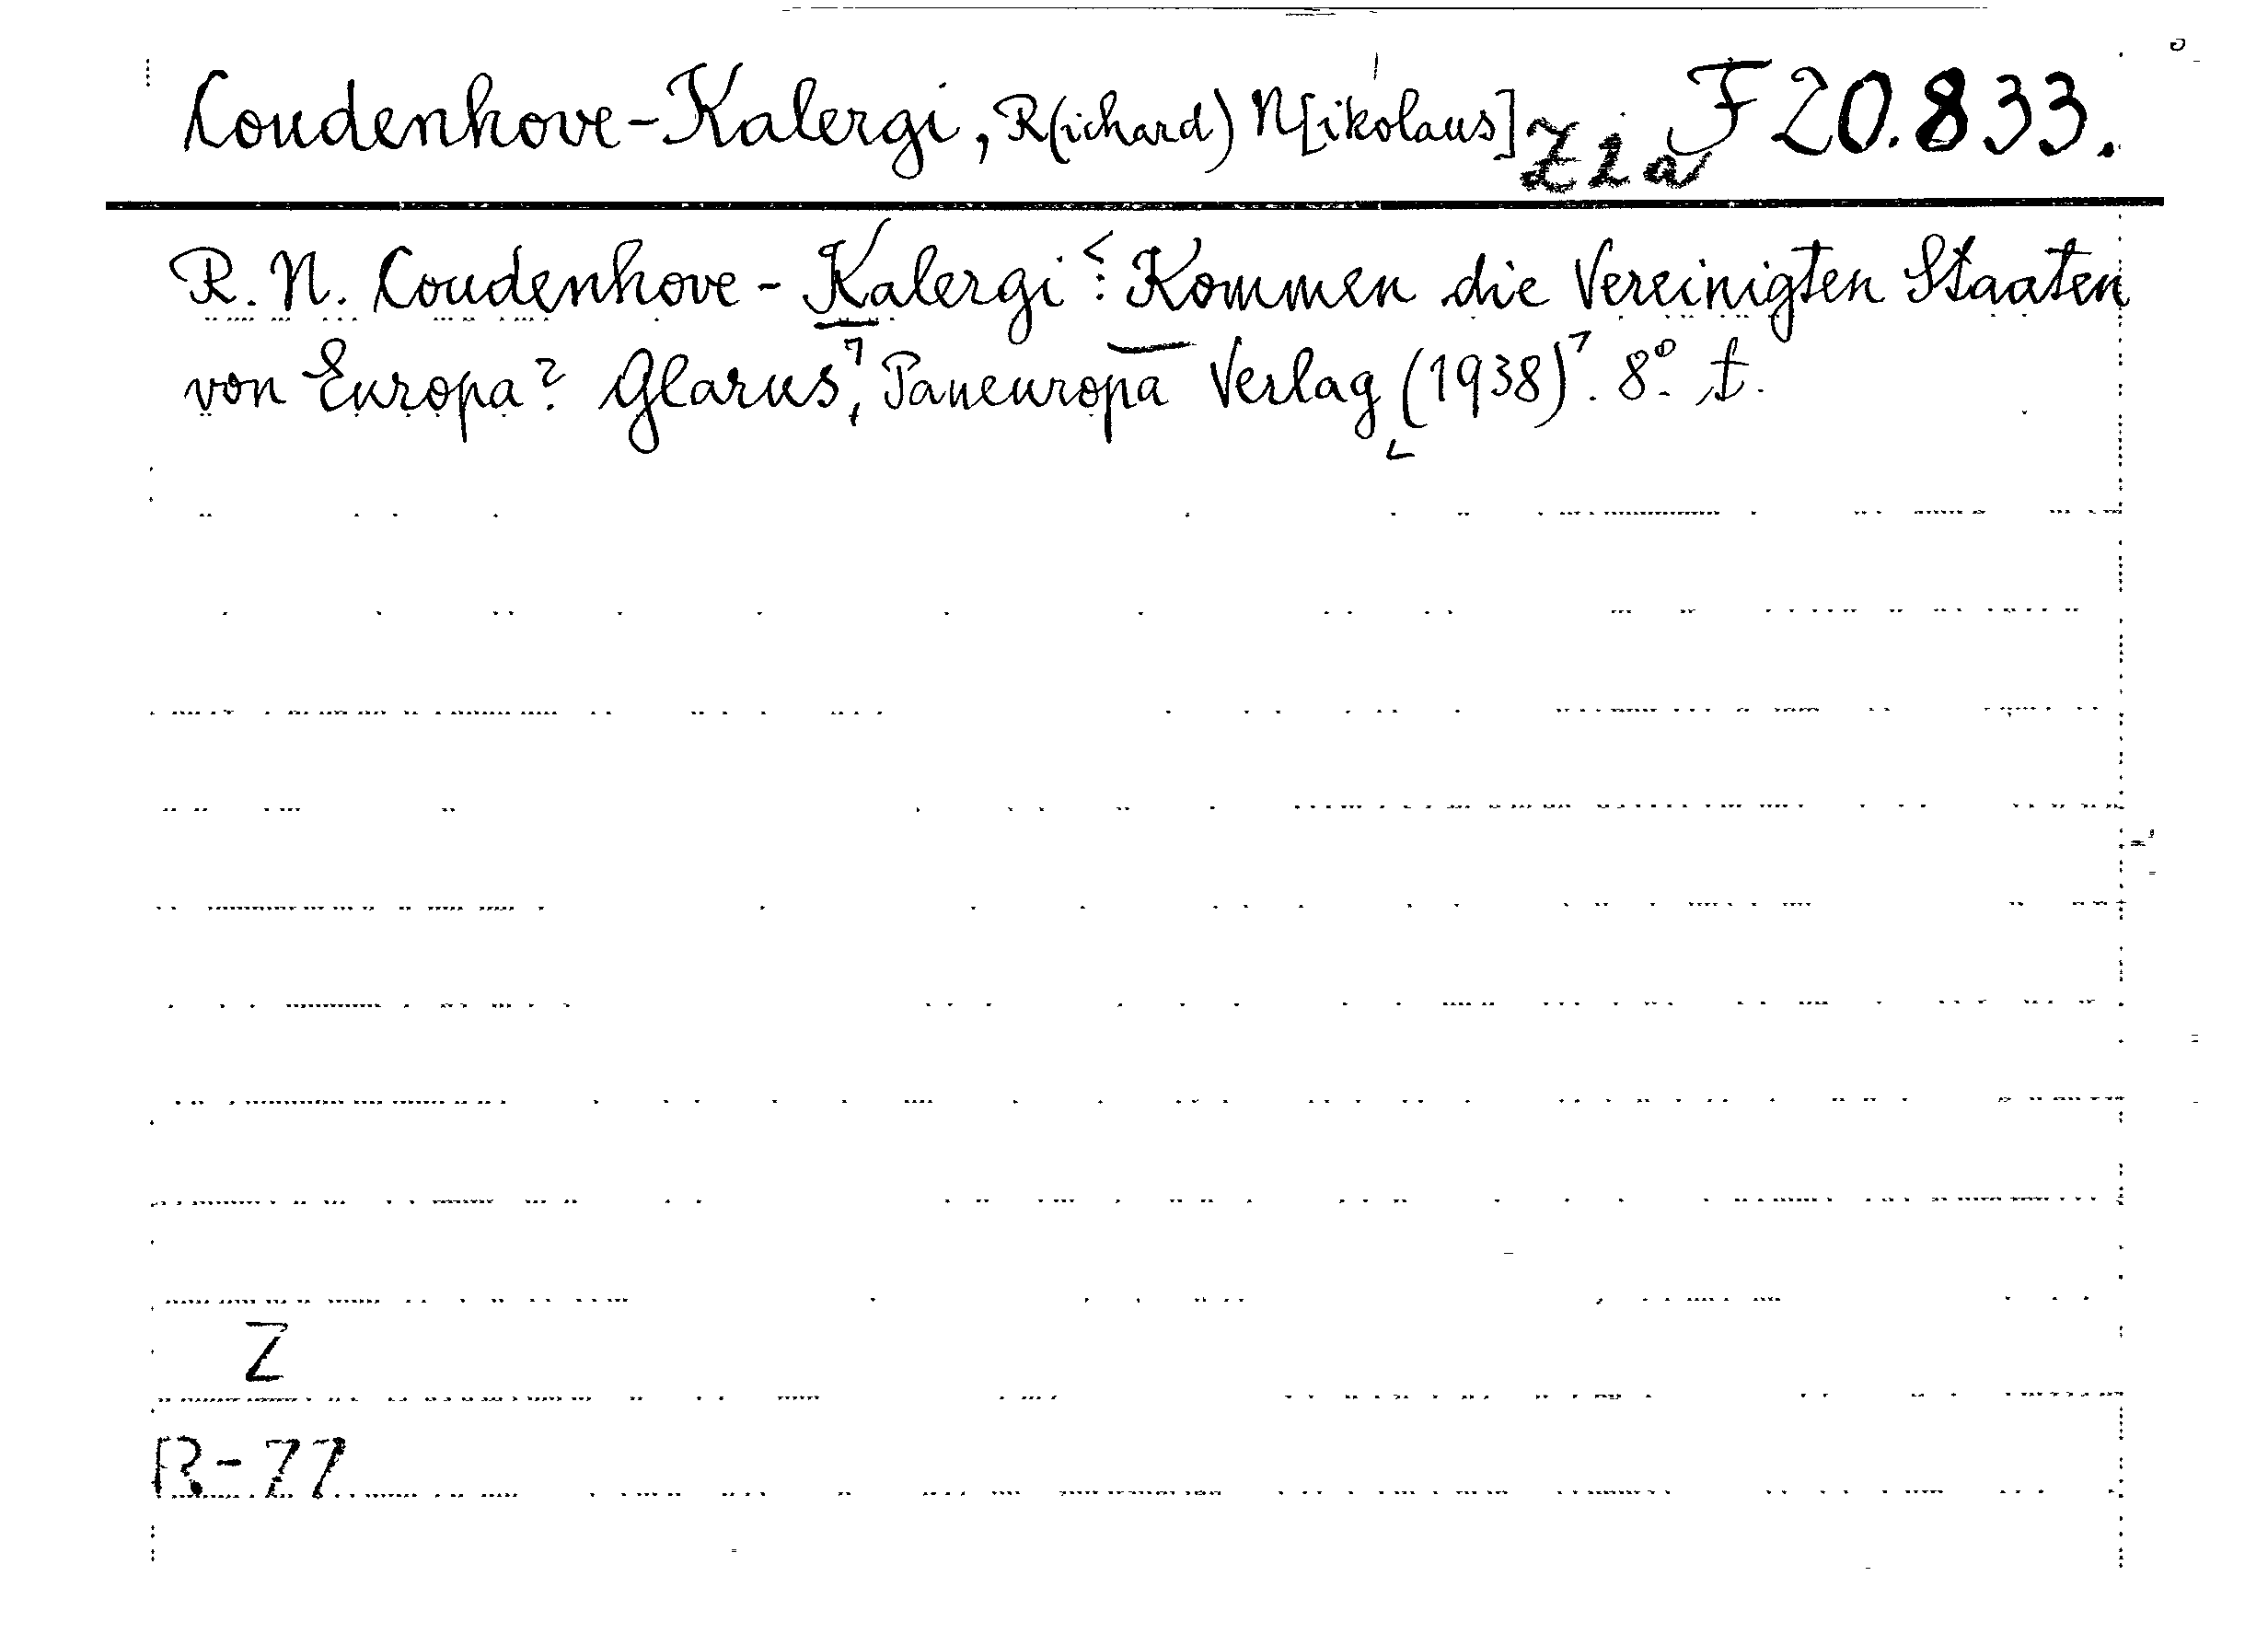 Coudenhove-Kalergi, R(ichard) N[ikolaus] Z1a F 20.833.
R. N. Coudenhove-Kalergi: Kommen die Vereinigten Staaten
von Europa? Glarus, Paneuropa Verlag (1938). 8°. †.
Z
R-77